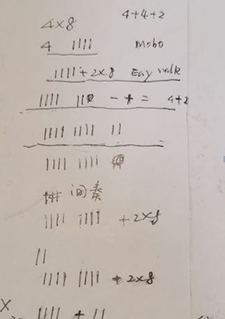 4×8 4+4+2
4 |||| Mobo
||||+2×8 Easy walk
|||| || - + = 4+2
|||| |||| ||
|||| ||||
间奏
|||| |||| +2×8
||
|||| |||| +2×8
X |||| + ||